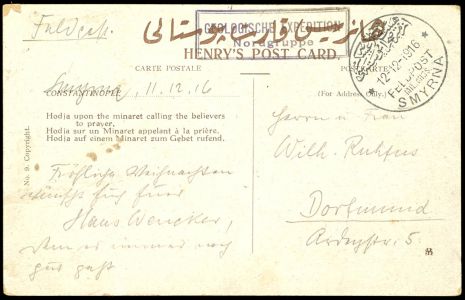 Feldpost.
GEOLOGISCHE EXPEDITION
Nordgruppe
HENRY'S POST CARD.
CARTE POSTALE
POSTKARTE
CONSTANTINOPLE
Smyrna, 11.12.16
(For Address Only.)
12-12-1916
FELDPOST
MIL. MISS.
SMYRNA
Hodja upon the minaret calling the believers
to prayer.
Hodja sur un Minaret appelant à la prière.
Hodja auf einem Minaret zum Gebet rufend.
No. 9. Copyright.
Fröhliche Weihnachten
wünscht Euch Euer
Hans Wencker,
dem es immer noch
gut geht
Herrn u. Frau
Wilh. Ruhfus
Dortmund
Ardeystr. 5.